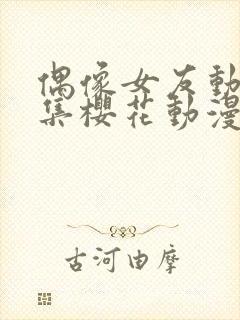 偶像女友動
集櫻花動漫
古河由摩